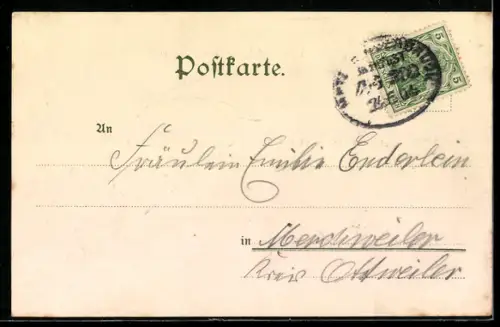 Postkarte.
5 5
An
Fräulein Emilie Enderlein
in Merchweiler
Kreis Ottweiler